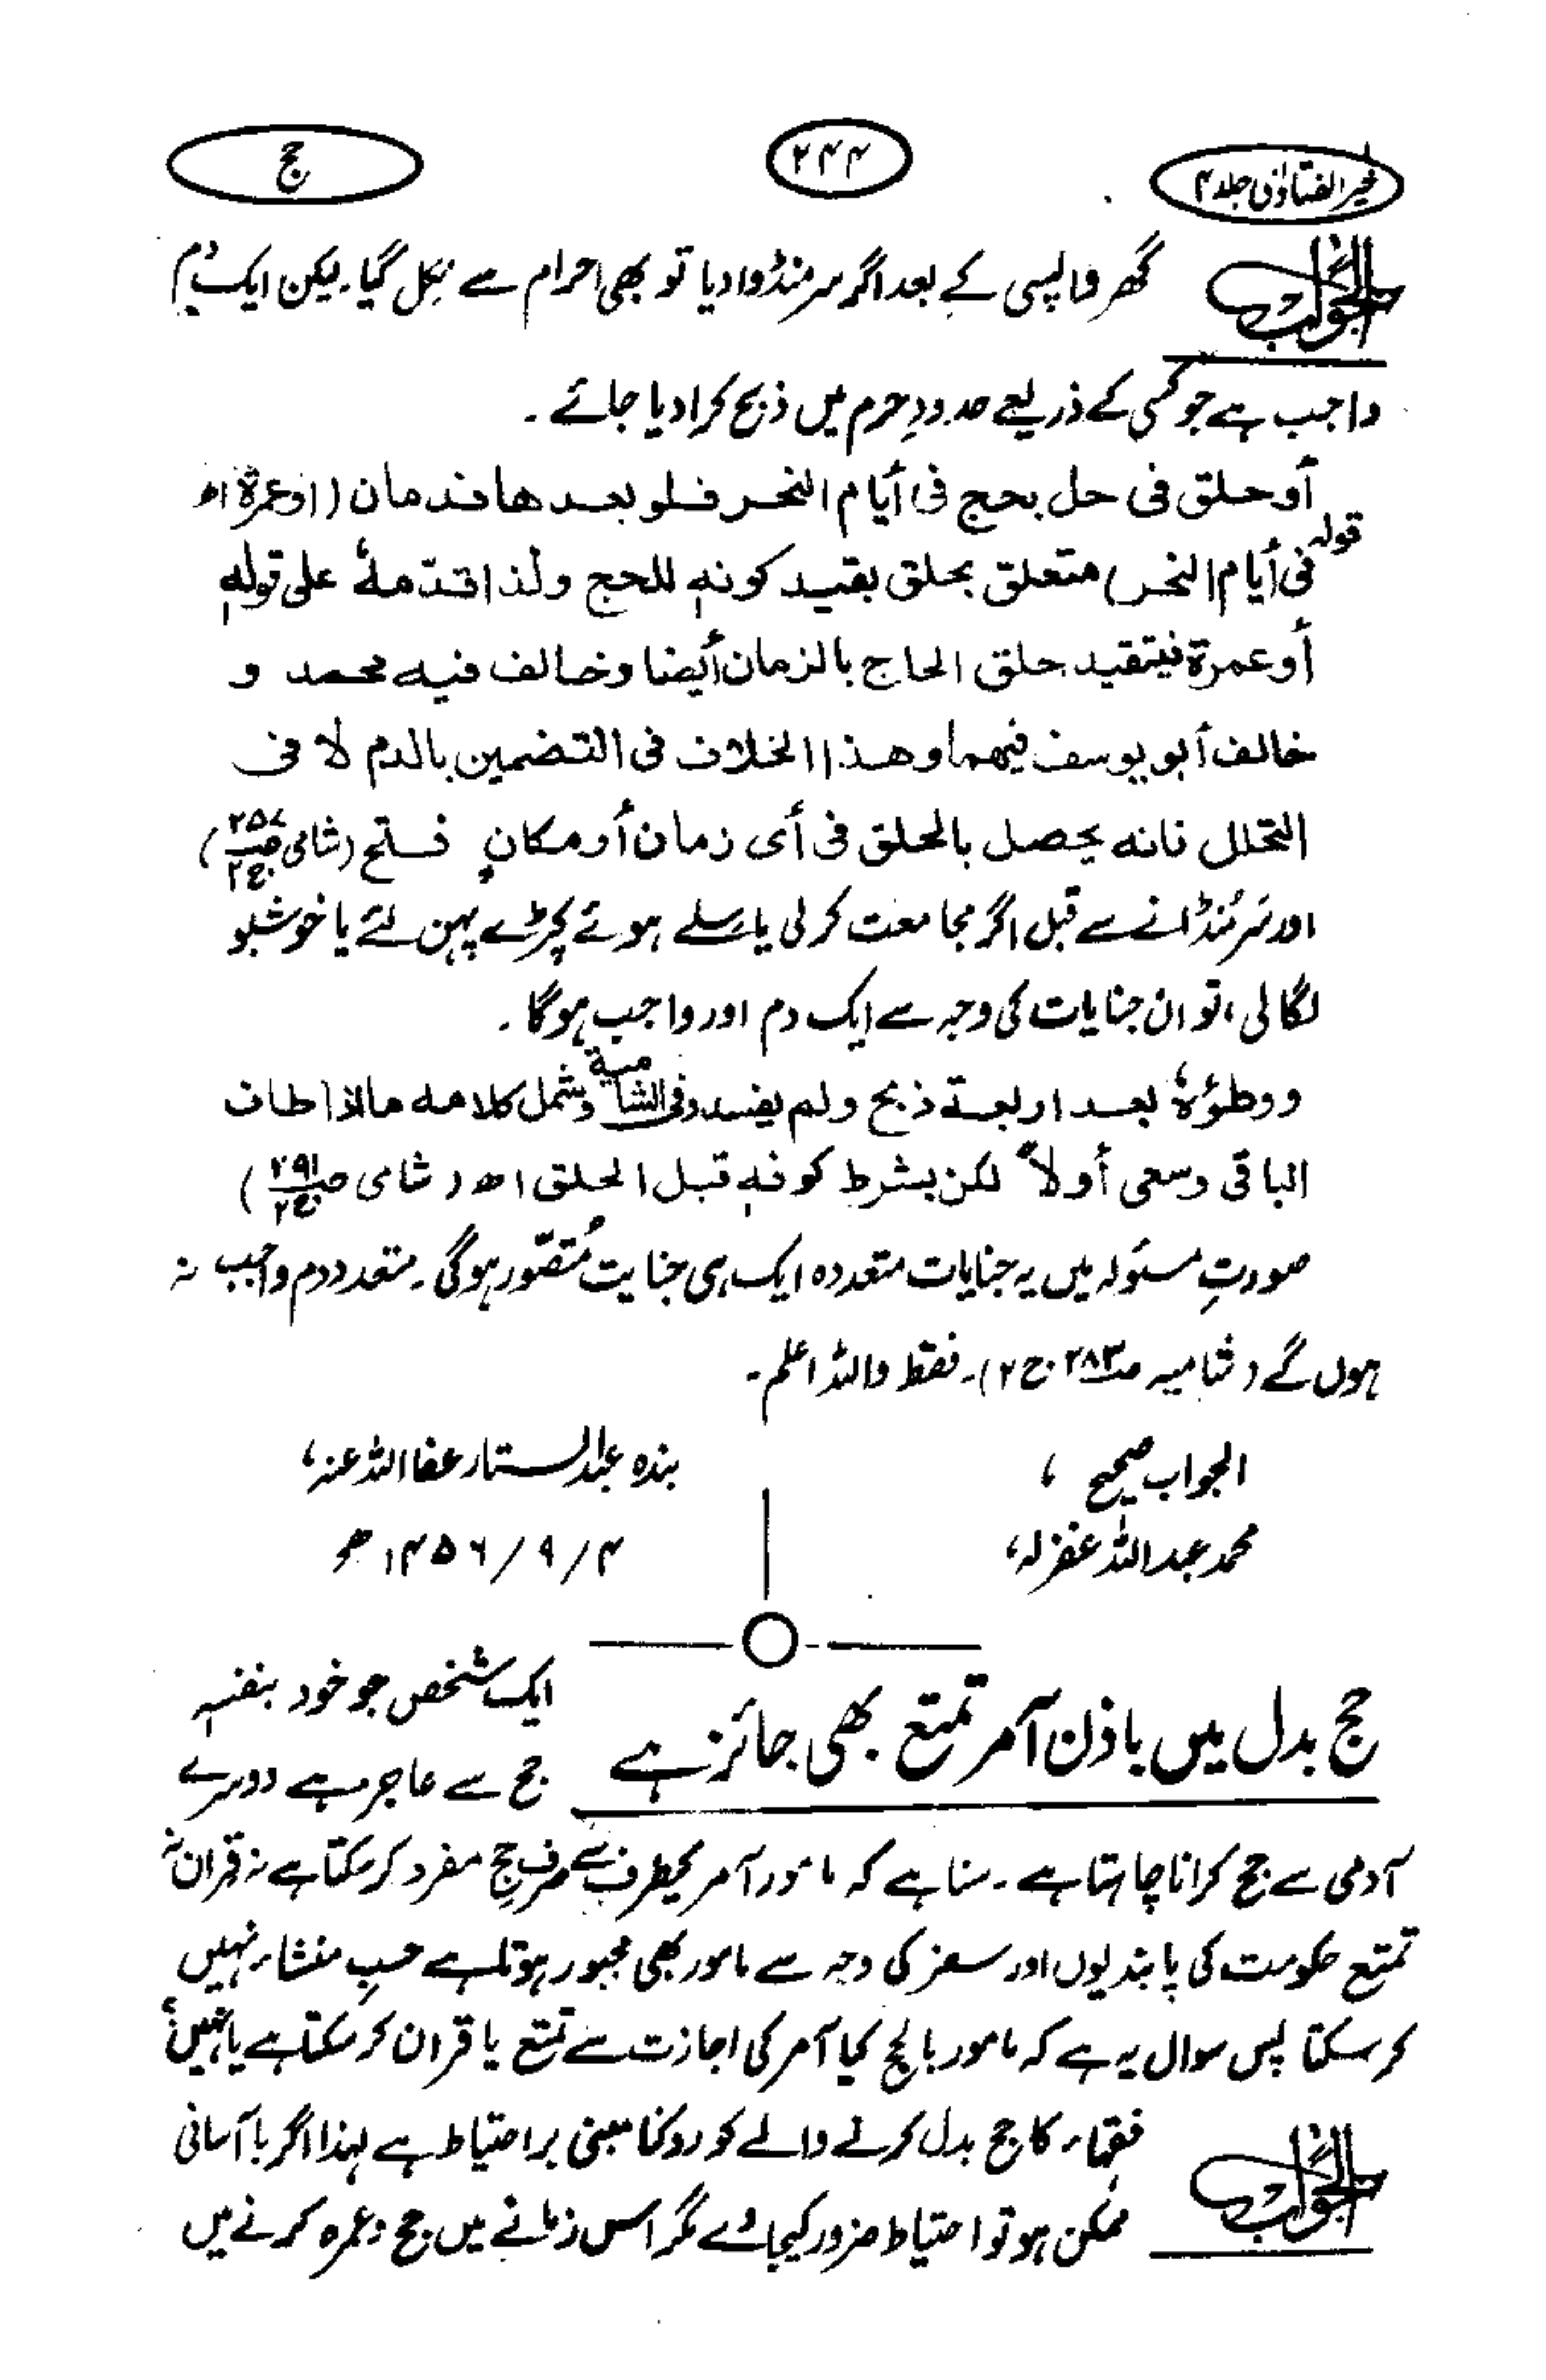 خیر الفتاویٰ جلد ۴
۲۴۴
حج
الجواب
گھر واپسی کے بعد اگر سر منڈوا دیا تو بھی احرام سے نکل گیا۔ لیکن ایک دم
واجب ہے جو کسی کے ذریعے حدودِ حرم میں ذبح کرا دیا جائے۔
أو حلق فی حل بحج فی أیام النحر فلو بعدها فدمان (او عمرة اھ
قوله فی أیام النحر) متعلق بحلق بقید کونهٖ للحج ولذا قدّمهٗ علی قولهٖ
أو عمرة فیتقید حلق الحاج بالزمان أیضا وخالف فیه محمد و
خالف أبو یوسف فیهما وهذا الخلاف فی التضمین بالدم لا فی
التحلل فانه یحصل بالحلق فی أی زمان أو مکانٍ فتح (شامی ص۲۵۴ ج۲)
اور سَر مُنڈانے سے قبل اگر مجامعت کر لی یا سلے ہوئے کپڑے پہن لئے یا خوشبو
لگا لی، تو ان جنایات کی وجہ سے ایک دم اور واجب ہوگا۔
ووطؤهٗ بعد اربعة ذبح ولم یفسد وفی الشامیة وشمل کلامه ما اذا طاف
الباقی وسعی أولاً لکن بشرط کونهٖ قبل الحلق اھ (شامی ص۲۹۱ ج۲)
صورتِ مسئولہ میں یہ جنایات متعددہ ایک ہی جنایت مُتصّور ہوگی۔ متعدد دم واجب نہ
ہوں گے (شامیہ ص۲۸۳ ج۲)۔ فقط واللہ اعلم۔
الجواب صحیح ،
بندہ عبدالستار عفا اللہ عنہ،
محمد عبداللہ غفرلہ،
۴/۹/۱۴۵۶ھ
حج بدل میں باذن آمر تمتع بھی جائز ہے
ایک شخص جو خود بنفسہٖ
حج سے عاجز ہے دوسرے
آدمی سے حج کرانا چاہتا ہے۔ سنا ہے کہ مامور آمر کیطرف سے صرف حج مفرد کر سکتا ہے نہ قران نہ
تمتع حکومت کی پابندیوں اور سفر کی وجہ سے مامور بھی مجبور ہوتا ہے حسبِ منشاء نہیں
کر سکتا پس سوال یہ ہے کہ مامور بالحج کیا آمر کی اجازت سے تمتع یا قران کر سکتا ہے یا نہیں؟
الجواب
فقہاء کا حج بدل کرنے والے کو روکنا مبنی بر احتیاط ہے لہذا اگر با آسانی
ممکن ہو تو احتیاط ضرور کیجاوے مگر اس زمانے میں حج و عمرہ کرنے میں